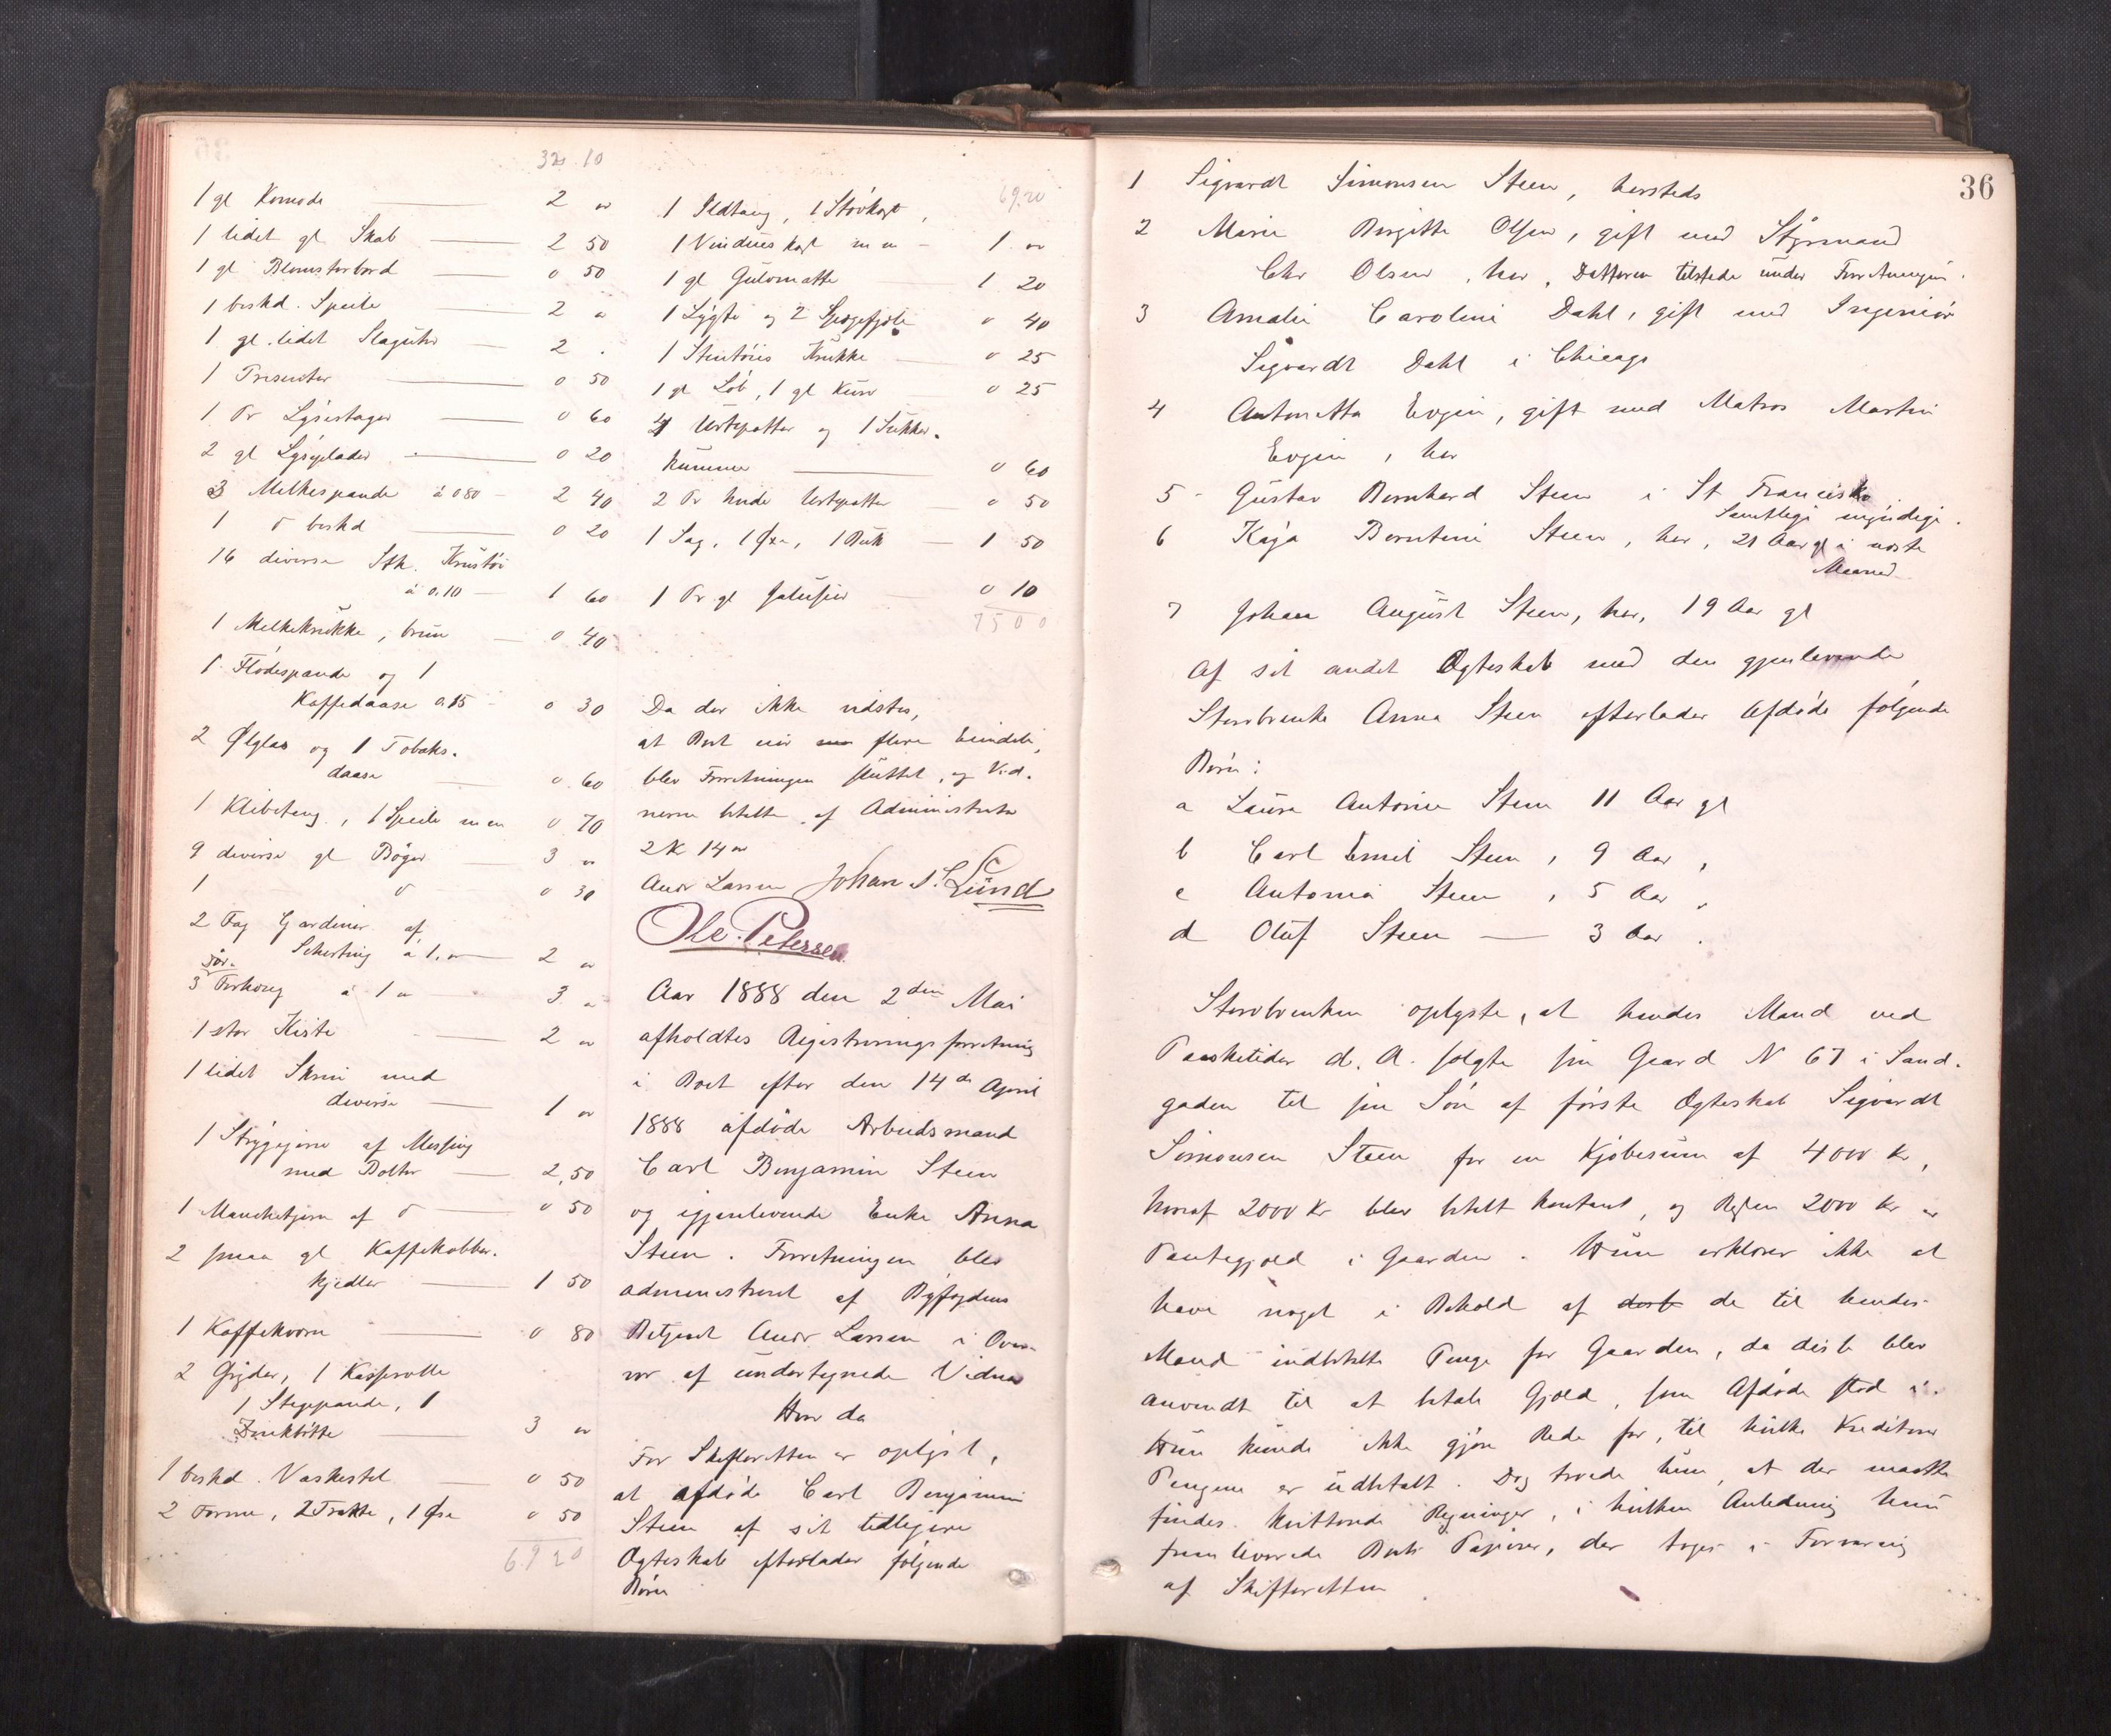 32 10
1 gl Komode 2 "
1 lidet gl Skab 2 50
1 gl Blomsterbord 0 50
1 beskd. Speile 2 "
1 gl. lidet Slaguhr 2 .
1 Presenter 0 50
1 Pr Lysestager 0 60
2 gl Lyseplader 0 20
3 Melkespande à 0 80 - 2 40
1 do beskd 0 20
16 diverse Stk. Krustöi
à 0.10 - 1 60
1 Melkekrukke, brun 0 40
1 Flödespande og 1
Kaffedaase 0.15 - 0 30
2 Ølglas og 1 Tobaks-
daase 0 60
1 Klibetang, 1 Speile m m 0 70
9 diverse gl Bøger 3 "
1 do 0 30
2 Fag Gardiner af
Schirting à 1." 2 "
3 Forhæng à 1 " 3 "
1 stor Kiste 2 "
1 lidet Skrin med
diverse 1 "
1 Strygejern af Messing
med Bolter 2,50
1 Manchetjern af do 0 50
2 smaa gl Kaffekobber-
kjedler 1 50
1 Kaffekværn 0 80
2 Gryder, 1 Kasserolle
1 Stegepande, 1
Zinkbötte 3 "
1 beskd. Vaskestel 0 50
2 Forme, 2 Trakte, 1 Øse 0 50
69 20
69.20
1 Ildtang, 1 Stövkost,
1 Vindueskost m m - 1 "
1 gl Gulvmatte 1 20
1 Lygte og 2 0 40
1 Stentöis Krukke 0 25
1 gl Løb, 1 gl Kurv 0 25
4 Urtepotter og 1 Sukker-
kumme 0 60
2 Pr hvide Urtepotter 0 50
1 Sag, 1 Øxe, 1 Buk - 1 50
1 Pr gl Galosjer 0 10
75 00
Da der ikke vidstes,
at Boet eier flere Eiendele,
blev Forretningen sluttet, og Vid-
nerne betalte af Administrator
2 K 14 ø
Andr Larsen Johan S. Lund
Ole. Petersen
Aar 1888 den 2den Mai
afholdtes Registreringsforretning
i Boet efter den 14de April
1888 afdöde Arbeidsmand
Carl Benjamin Steen
og igjenlevende Enke Anna
Steen. Forretningen blev
administreret af Byfogdens
Betjent Andr Larsen i Over-
vær af undertegnede Vidner
Hvor da
For Skifteretten er oplyst,
at afdöde Carl Benjamin
Steen af sit tidligere
Ægteskab efterlader følgende
Børn
36
1 Sigvardt Simonsen Steen, hersteds
2 Marie Birgitte Olsen, gift med Styrmand
Chr Olsen, her, Datteren tilstede under Forretningen.
3 Amalie Caroline Dahl, gift med Ingeniör
Sigvardt Dahl i Chicago
4 Antonette Evjen, gift med Matros Martin
Evjen, her
5 - Gustav Bernhard Steen i St Francisko
Samtlige myndige.
6 Kaja Berntine Steen, her, 21 Aar gl i næste
Maaned
7 Johan August Steen, her, 19 Aar gl
Af sit andet Ægteskab med den gjenlevende
Stervbvenke Anna Steen efterlader Afdöde følgende
Börn:
a Laura Antonie Steen 11 Aar gl
b Carl Emil Steen, 9 Aar "
c Antonia Steen, 5 Aar "
d Oluf Steen — 3 Aar .
Stervbvenken oplyste, at hendes Mand ved
Paasketider d. A. solgte sin Gaard N 67 i Sand-
gaden til sin Sön af förste Ægteskab Sigvardt
Simonsen Steen for en Kjöbesum af 4000 kr,
hvoraf 2000 kr blev betalt kontant, og Resten 2000 kr er
Pantegjæld i Gaarden. Hun erklærer ikke at
have noget i Behold af de til hendes
Mand indbetalte Penge for Gaarden, da disse blev
anvendt til at betale Gjæld, som Afdöde stod i.
Hun kunde ikke gjöre Rede for, til hvilke Kreditorer
Pengene er udbetalt. Dog troede hun, at der maatte
findes kvitterede Regninger, i hvilken Anledning hun
fremleverede Boets Papirer, der toges i Forvaring
af Skifteretten